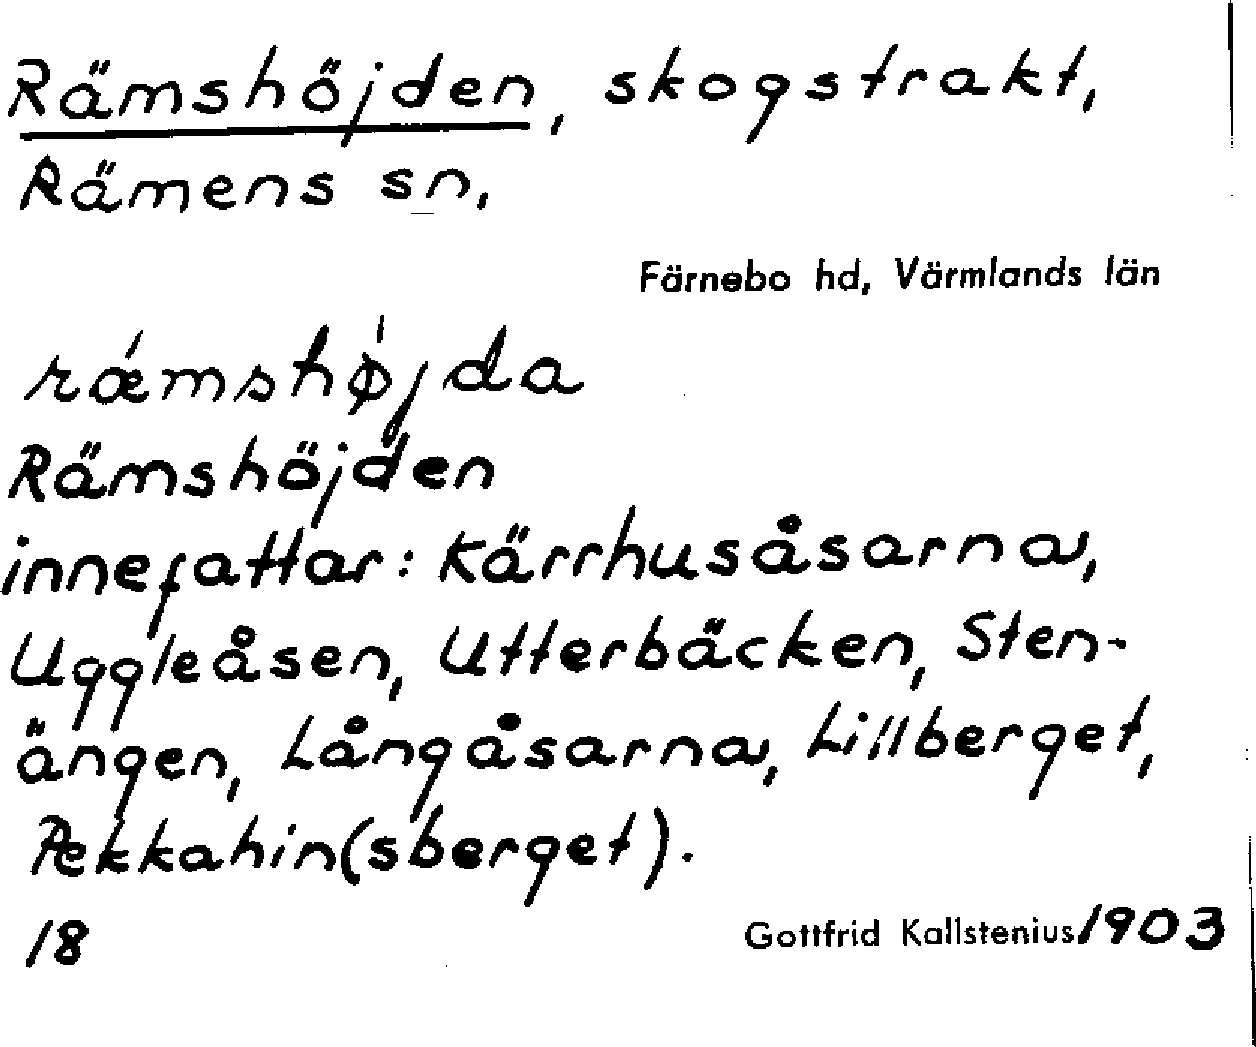 Rämshöjden, skogstrakt,
Rämens sn,
Färnebo hd, Värmlands län
rǽmshø̍jda
Rämshöjden
innefattar: Kärrhusåsarna,
Uggleåsen, Utterbäcken, Sten-
ängen, Långåsarna, Lillberget,
Pekkahin(sberget).
18
Gottfrid Kallstenius 1903